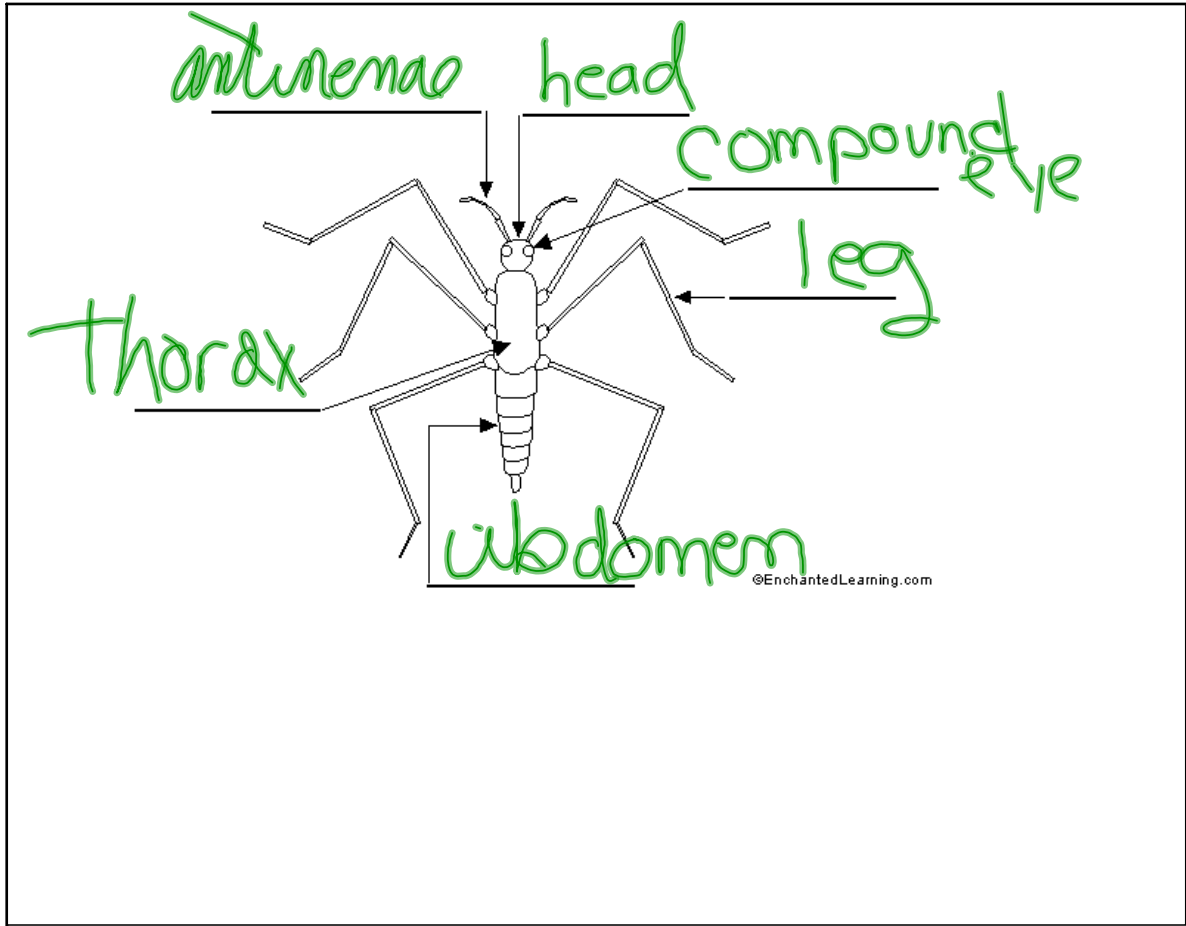 antinenae
head
compound
eye
leg
Thorax
abdomen
©EnchantedLearning.com